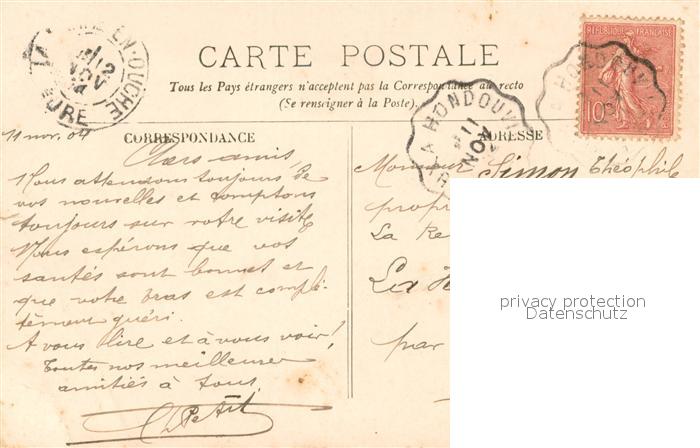 EN-OUCHE
12
NOV
EURE
CARTE POSTALE
Tous les Pays étrangers n'acceptent pas la Correspondance au recto
(Se renseigner à la Poste).
REPUBLIQUE FRANÇAISE
10
A HONDOUV
11
NOV
11 nov. 04
CORRESPONDANCE
ADRESSE
Chers amis,
Nous attendons toujours de
vos nouvelles et comptons
toujours sur votre visite
Nous espérons que vos
santés sont bonnes et
que votre bras est complè-
tement guéri.
A vous lire et à vous voir!
Toutes nos meilleures
amitiés à tous.
Petit
Monsieur Simon Théophile
propr
La Re
La H
par
privacy protection
Datenschutz